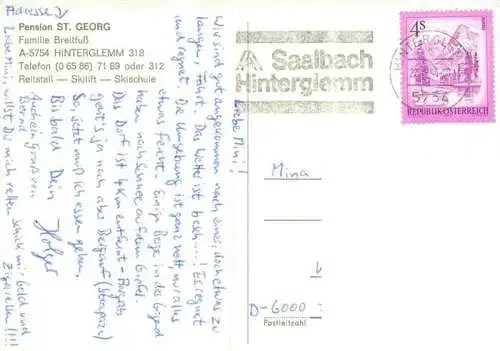 Adresse
Pension ST. GEORG
Familie Breitfuß
A-5754 HINTERGLEMM 318
Telefon (0 65 86) 71 89 oder 312
Reitstall — Skilift — Skischule
Saalbach
Hinterglemm
HINTERGLEMM
5754
4S
REPUBLIK ÖSTERREICH
Liebe Mini!
Wir sind gut angekommen nach einer, doch etwas zu
langen, Fahrt. Das Wetter ist besch...! Es regnet
und regnet. Die Umgebung ist ganz nett nur alles
etwas feucht. Einige Berge in der Gegend
haben noch Schnee auf dem Gipfel.
Das Dorf ist 4 km entfernt – Bergab
geht's ja noch aber Bergauf
So, jetzt muß ich essen gehen.
Bis bald Dein Holger
Auch ein Gruß von
Bernd
Liebe Mini, willst Du mich retten schick mir bald und
Zigaretten!!!!
Mina
D-6000
Postleitzahl